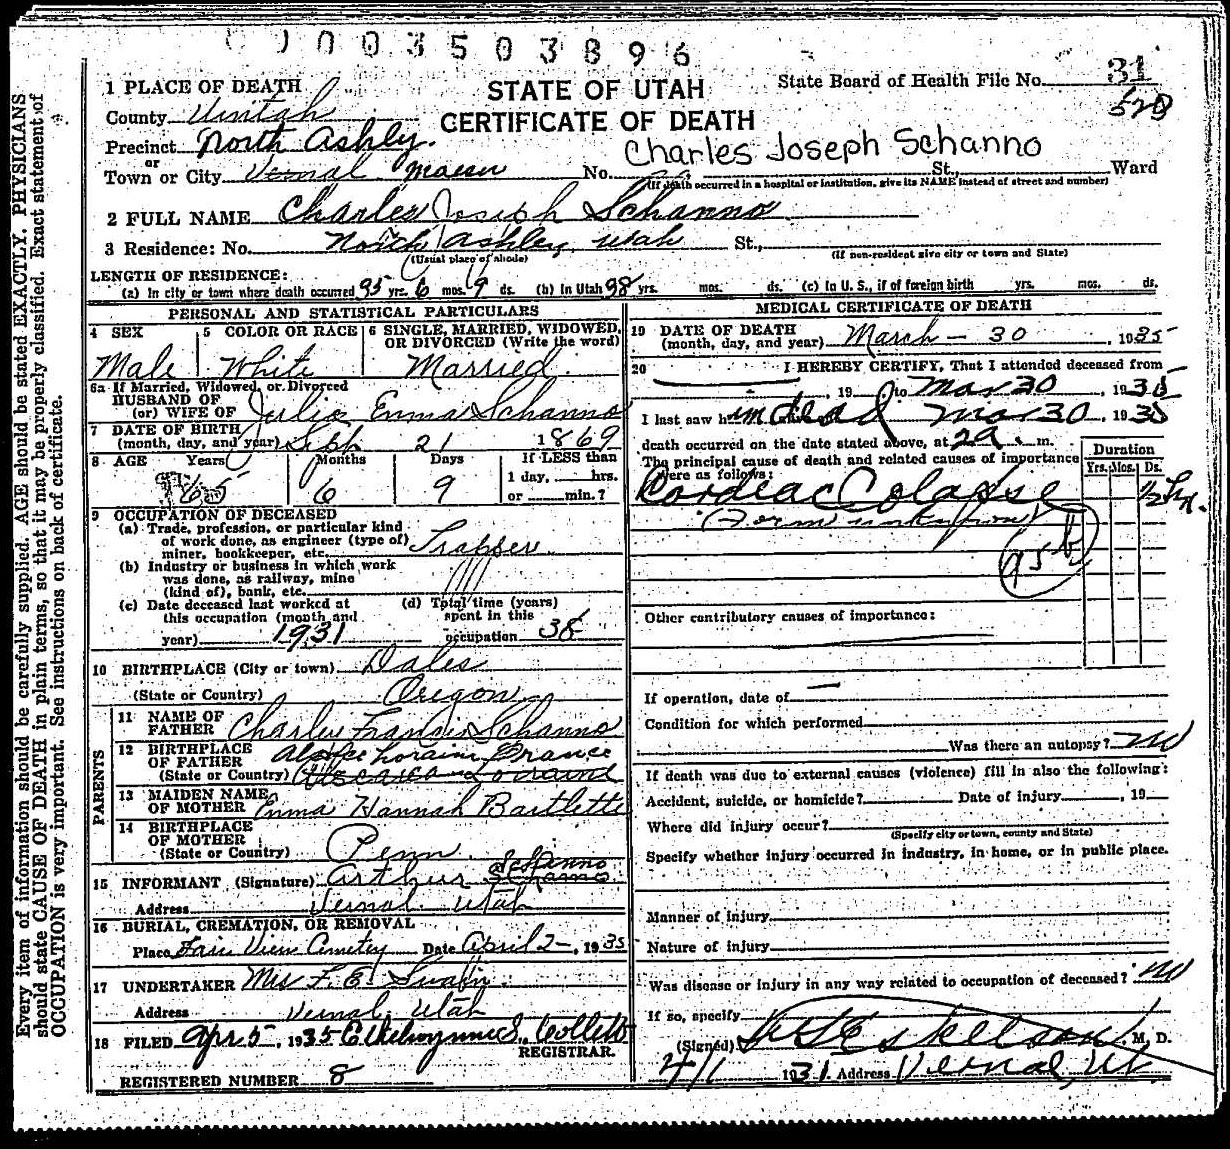 0 0 3 5 0 3 8 9 6
STATE OF UTAH
CERTIFICATE OF DEATH
State Board of Health File No. 31
Charles Joseph Schanno
1 PLACE OF DEATH
County Uintah
Precinct North Ashley.
or
Town or City Vernal Maeser No. St., Ward
(If death occurred in a hospital or institution, give its NAME instead of street and number)
2 FULL NAME Charles Joseph Schanno
3 Residence: No. North Ashley, Utah St.,
(Usual place of abode) (If non-resident give city or town and State)
LENGTH OF RESIDENCE:
(a) In city or town where death occurred yrs. 6 mos. 9 ds. (b) In Utah yrs. mos. ds. (c) In U. S., if of foreign birth yrs. mos. ds.
PERSONAL AND STATISTICAL PARTICULARS
4 SEX Male
5 COLOR OR RACE White
6 SINGLE, MARRIED, WIDOWED, OR DIVORCED (Write the word) Married.
6a If Married, Widowed, or Divorced
HUSBAND OF
(or) WIFE OF Julia Emma Schanno
7 DATE OF BIRTH
(month, day, and year) Sept 21 1869
8 AGE Years 65 Months 6 Days 9 If LESS than
1 day, hrs.
or min.?
9 OCCUPATION OF DECEASED
(a) Trade, profession, or particular kind
of work done, as engineer (type of)
miner, bookkeeper, etc. Trapper.
(b) Industry or business in which work
was done, as railway, mine
(kind of), bank, etc.
(c) Date deceased last worked at
this occupation (month and
year) 1931
(d) Total time (years)
spent in this
occupation 35
10 BIRTHPLACE (City or town) Dales
(State or Country) Oregon
PARENTS
11 NAME OF
FATHER Charles Francis Schanno
12 BIRTHPLACE
OF FATHER Loraine France
(State or Country) Lorraine
13 MAIDEN NAME
OF MOTHER Emma Hannah Bartlette
14 BIRTHPLACE
OF MOTHER
(State or Country) Penn.
15 INFORMANT (Signature) Arthur Schanno
Address Vernal, Utah
16 BURIAL, CREMATION, OR REMOVAL
Place Fair View Cemetery Date April 2 , 1935
17 UNDERTAKER Mrs F. E. Swain
Address Vernal, Utah
18 FILED Apr 5 , 1935 S. Collett
REGISTRAR.
REGISTERED NUMBER 8
MEDICAL CERTIFICATE OF DEATH
19 DATE OF DEATH
(month, day, and year) March - 30 , 1935
20 I HEREBY CERTIFY, That I attended deceased from
, 19 to Mar 30 , 1935
I last saw him dead Mar 30 1935
death occurred on the date stated above, at 2a . m.
The principal cause of death and related causes of importance
were as follows: Duration
Yrs. Mos. Ds.
Cordiac Colapse ½ hr.
(Form unknown)
95b
Other contributory causes of importance:
If operation, date of —
Condition for which performed
Was there an autopsy? no
If death was due to external causes (violence) fill in also the following:
Accident, suicide, or homicide? Date of injury , 19
Where did injury occur?
(Specify city or town, county and State)
Specify whether injury occurred in industry, in home, or in public place.
Manner of injury
Nature of injury
Was disease or injury in any way related to occupation of deceased? no
If so, specify
(Signed) Eskelson , M. D.
4/1 1931. Address Vernal, Ut.
Every item of information should be carefully supplied. AGE should be stated EXACTLY. PHYSICIANS
should state CAUSE OF DEATH in plain terms, so that it may be properly classified. Exact statement of
OCCUPATION is very important. See instructions on back of certificate.